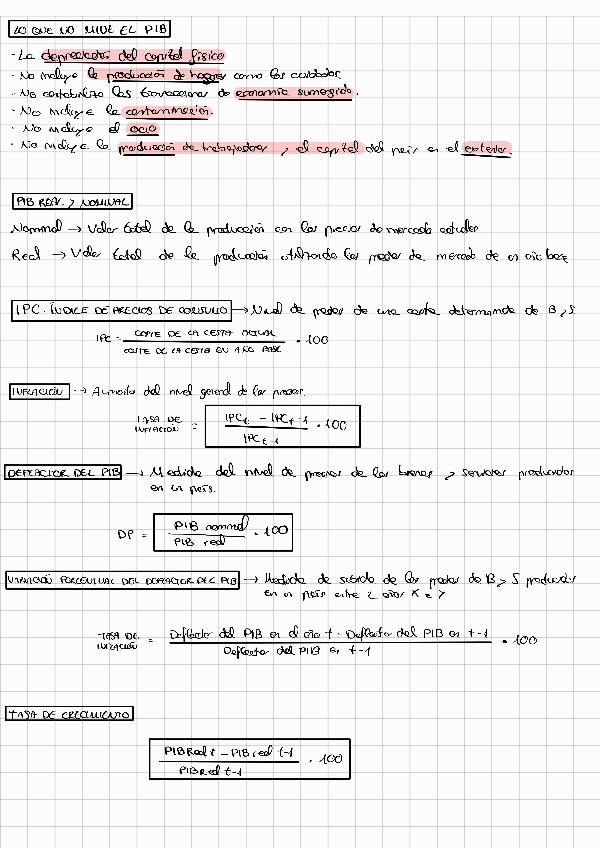 LO QUE NO MIDE EL PIB
· La depreciación del capital físico
· No incluye la producción de hogares como los cuidados.
· No contabiliza las transacciones de economía sumergida.
· No incluye la contaminación.
· No incluye el ocio
· No incluye la producción de trabajadores y el capital del país en el exterior.
PIB REAL Y NOMINAL
Nominal → Valor total de la producción con los precios de mercado actuales
Real → Valor total de la producción utilizando los precios de mercado de un año base
IPC. ÍNDICE DE PRECIOS DE CONSUMO → Nivel de precios de una cesta determinada de B y S.
IPC = COSTE DE LA CESTA ACTUAL / COSTE DE LA CESTA EN AÑO BASE · 100
INFLACIÓN → Aumento del nivel general de los precios.
TASA DE INFLACIÓN = IPCt - IPCt-1 / IPCt-1 · 100
DEFLACTOR DEL PIB → Medida del nivel de precios de los bienes y servicios producidos
en un país.
DP = PIB nominal / PIB real · 100
VARIACIÓN PORCENTUAL DEL DEFLACTOR DEL PIB → Medida de subida de los precios de B y S producidos
en un país entre 2 años X e Y
TASA DE INFLACIÓN = Deflactor del PIB en el año t - Deflactor del PIB en t-1 / Deflactor del PIB en t-1 · 100
TASA DE CRECIMIENTO
PIB Real t - PIB real t-1 / PIB real t-1 · 100